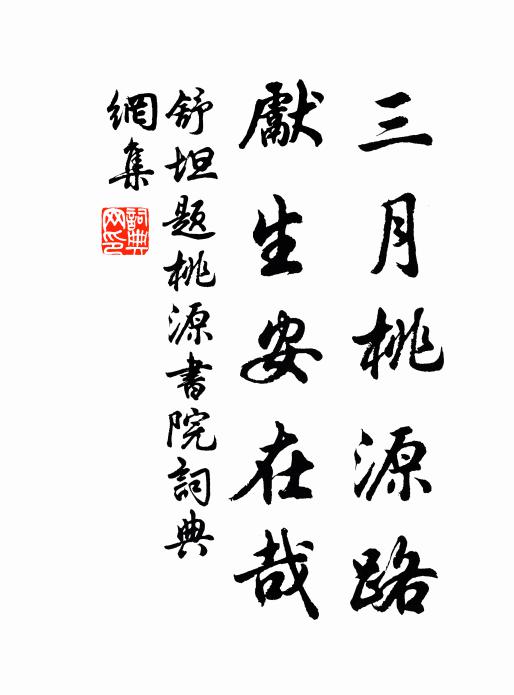 三月桃源路
獻生安在哉
舒坦题桃源書院詞典
網集
詞典网印